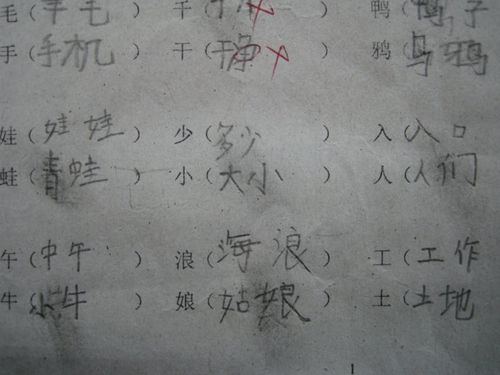 毛（羊毛） 千（ 鸭（鸭子
手（手机） 干（干净） 鸦（乌鸦
娃（娃娃） 少（多少） 入（入口
蛙（青蛙） 小（大小） 人（人们
午（中午） 浪（海浪） 工（工作
牛（小牛） 娘（姑娘） 土（土地
1